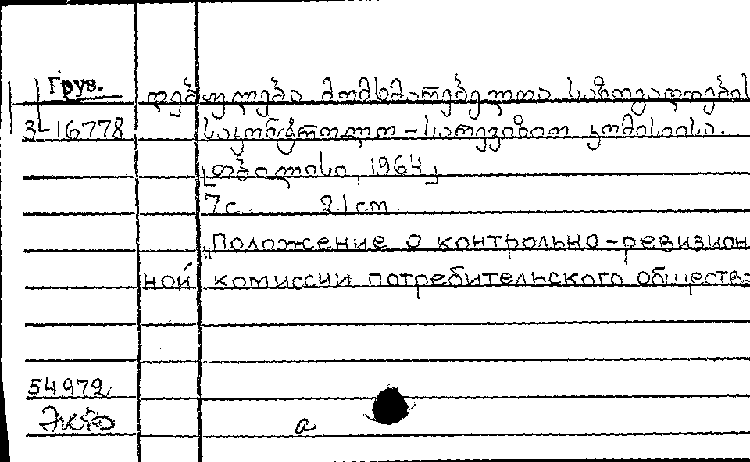 Груз.
დებულება მომხმარებელთა საზოგადოების
3-16778
საკონტროლო-სარევიზიო კომისიისა.
[თბილისი, 1964]
7с. 21cm
"Положение о контрольно-ревизион
ной комиссии потребительского общества
54972
а